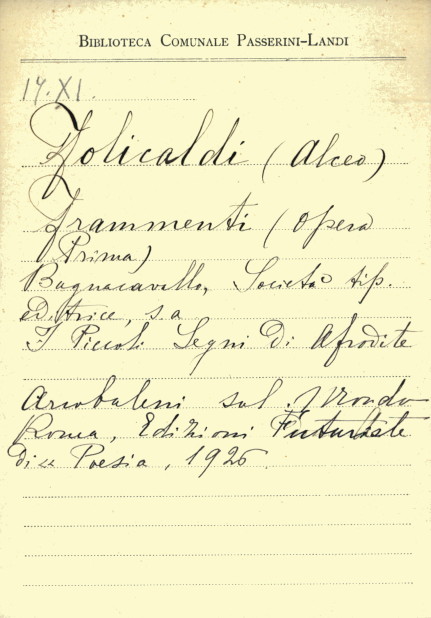 BIBLIOTECA COMUNALE PASSERINI-LANDI
14.XI.
Folicaldi (Alceo)
Frammenti (Opera
Prima)
Bagnacavallo, Società tip.
editrice, s.a
I Piccoli Segni di Afrodite
Arcobaleni sul Mondo
Roma, Edizioni Futuriste
di Poesia, 1926